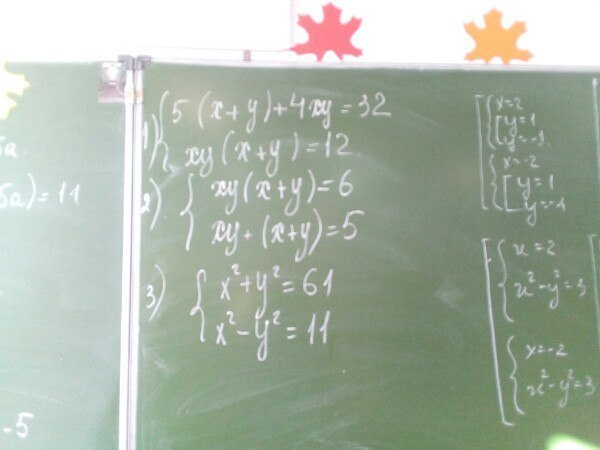 5a
5a) = 11
-5
1) { 5(x+y)+4xy=32
xy(x+y)=12
2) { xy(x+y)=6
xy+(x+y)=5
3) { x²+y²=61
x²-y²=11
[ { x=2
[ y=1
y=-1
{ x=-2
[ y=1
y=-1
[ { x=2
x²-y²=3
{ x=-2
x²-y²=3